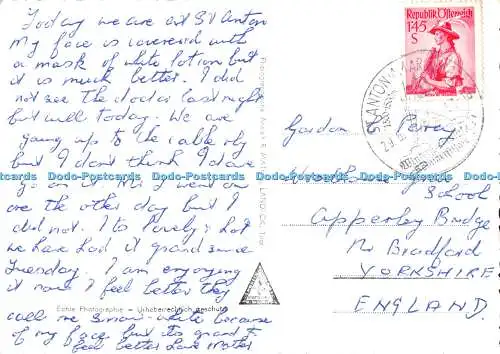 Today we are at St Anton
My face is covered with
a mask of white lotion but
it is much better. I did
not see the doctor last night
but will today. We are
going up to the cable rly
but I don't think I dare
go on it Mr J went on
one the other day but I
did not. Its lovely & hot
we have had it grand since
Tuesday. I am enjoying
it now I feel better they
call me Snow-white because
of my face but its grand to
feel better Love Mother
Echte Photographie – Urheberrechtlich geschützt
Republik Österreich
1·45
S
ST. ANTON A. ARLBERG
Gordon Perry
Woodhouse Grove
School
Apperley Bridge
Nr Bradford
YORKSHIRE
ENGLAND
www.Postcards-Whatnots.com